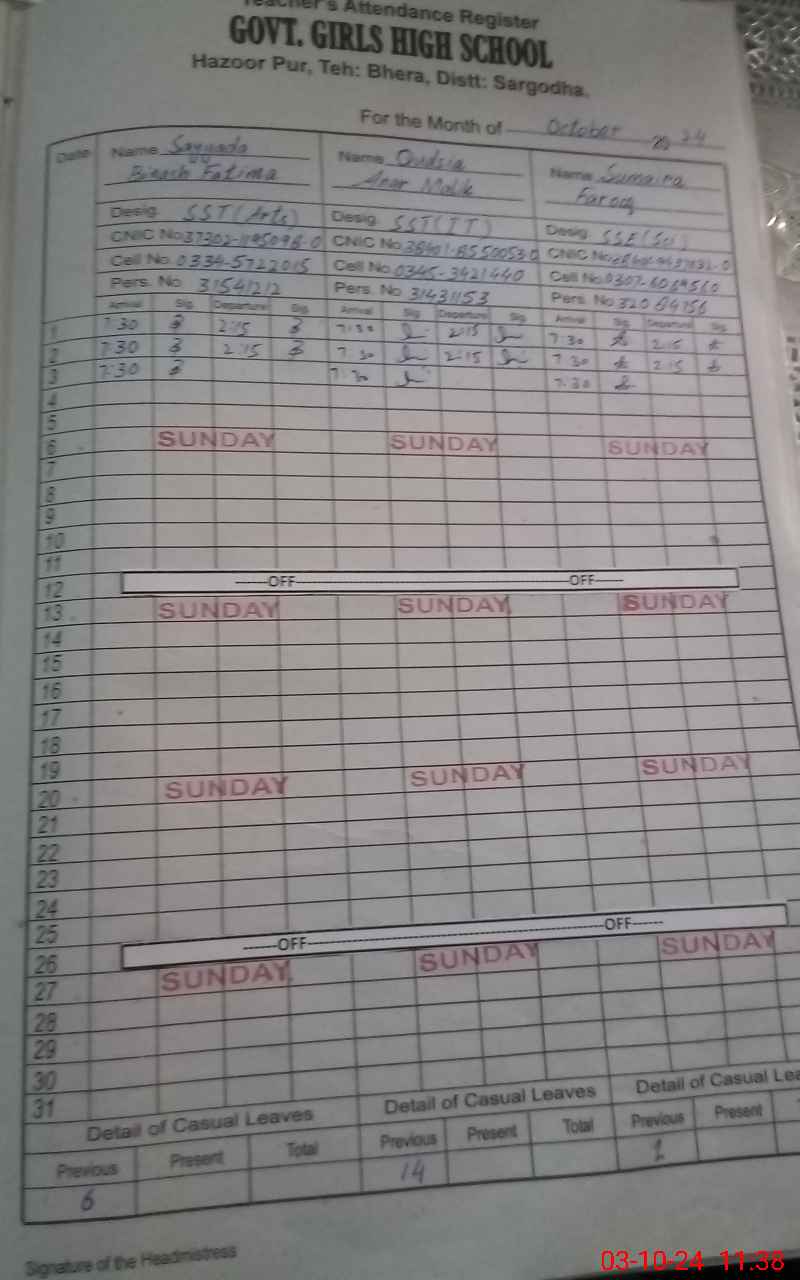 Teacher's Attendance Register
GOVT. GIRLS HIGH SCHOOL
Hazoor Pur, Teh: Bhera, Distt: Sargodha.
For the Month of October 20 24
Date Name Sayyada Name Qudsia Name Sumaira
Binash Fatima Anar Malik Farooq
Desig. SST(Arts) Desig. SST(IT) Desig. SSE(Sci)
CNIC No. CNIC No. CNIC No.
Cell No. 0334-5722015 Cell No. 0345-3421440 Cell No.
Pers. No. 31541212 Pers. No. 31431153 Pers. No.
Arrival Sig. Departure Sig. Arrival Sig. Departure Sig. Arrival Sig. Departure Sig.
1 7:30 2:15 7:30 2:15 7:30 2:15
2 7:30 2:15 7:30 2:15 7:30 2:15
3 7:30 7:30 7:30
4
5
6 SUNDAY SUNDAY SUNDAY
7
8
9
10
11
12 OFF OFF
13 SUNDAY SUNDAY SUNDAY
14
15
16
17
18
19
20 SUNDAY SUNDAY SUNDAY
21
22
23
24
25
26 OFF OFF
27 SUNDAY SUNDAY SUNDAY
28
29
30
31
Detail of Casual Leaves Detail of Casual Leaves Detail of Casual Lea
Previous Present Total Previous Present Total Previous Present
6 14 1
Signature of the Headmistress
03-10-24 11:38